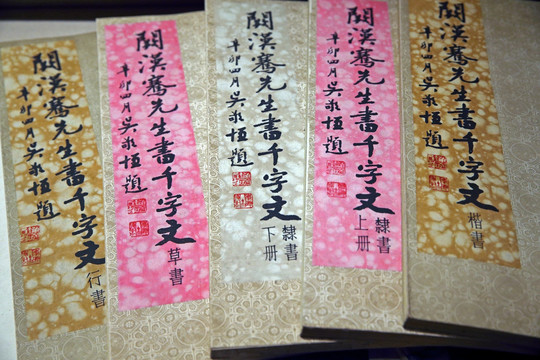 闕漢騫先生書千字文
辛卯四月吳敬恆題
行書
闕漢騫先生書千字文
辛卯四月吳敬恆題
草書
闕漢騫先生書千字文
辛卯四月吳敬恆題
隸書
下冊
闕漢騫先生書千字文
辛卯四月吳敬恆題
隸書
上冊
闕漢騫先生書千字文
辛卯四月吳敬恆題
楷書